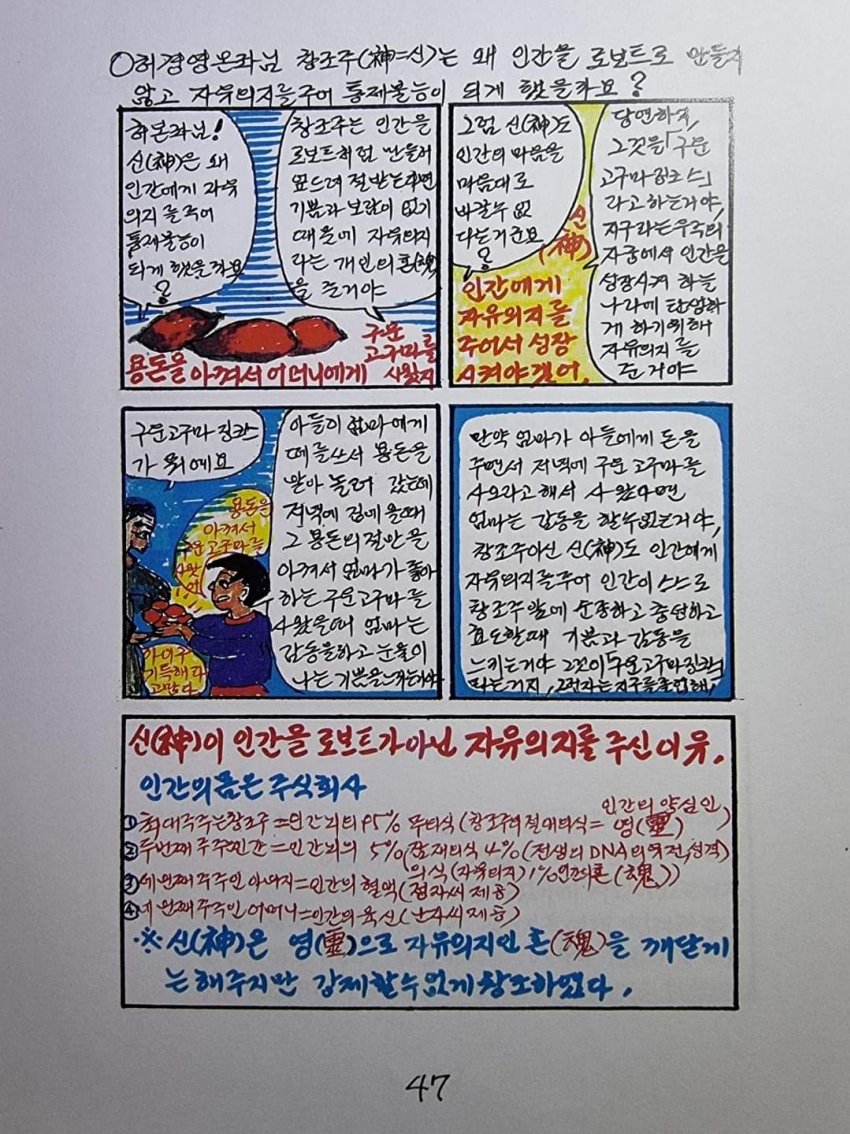 ○허경영온좌님 창조주(神=신)는 왜 인간을 로보트로 만들지
않고 자유의지를주어 통제불능이 되게 했을좌요?
허온좌님!
신(神)은 왜
인간에게 자유
의지를주어
통제불능이
되게 했을좌요
?
창조주는 인간을
로보트처럼 만들어
엎드려 절받는다면
기쁨과 보람이 없기
때문에 자유의지
라는 개인의혼(魂)
을 준거야
용돈을 아껴서 어머니에게
구운
고구마를
사왔지
그럼 신(神)도
인간의 마음을
마음대로
바꿀수 없
다는거군요
?
신
(神)
인간에게
자유의지를
주어서 성장
시켜야겠어.
당연하지,
그것을「구운
고구마징크스」
라고하는거야,
지구라는우주의
자궁에서 인간을
성장시켜 하늘
나라에 탄생하
게 하기위해
자유의지를
준거야
구운고구마 징크스
가 뭐에요
용돈을
아껴서
구운고구마를
사왔
어
아이구
기특해라
고맙다
아들이 엄마에게
떼를쓰서 용돈을
받아 놀러 갔는데
저녁에 집에올때
그 용돈의절반을
아껴서 엄마가 좋아
하는 구운고구마를
사왔을때 엄마는
감동을하고 눈물이
나는 기쁨을느끼는거야
만약 엄마가 아들에게 돈을
주면서 저녁에 구운고구마를
사오라고해서 사왔다면
엄마는 감동을 할수없는거야,
창조주이신 신(神)도 인간에게
자유의지를주어 인간이 스스로
창조주앞에 순종하고 충연하고
효도할때 기쁨과 감동을
느끼는거야 그것이「구운고구마징크스」
라는거지,
신(神)이 인간을 로보트가아닌 자유의지를 주신이유.
인간의몸은 주식회사
①최대주주는창조주=인간뇌의95% 무의식(창조주의절대의식=인간의 양심인 영(靈))
②두번째주주인간=인간뇌의 5%(잠재의식4%(전생의DNA의역전,성격)
의식(자유의지)1%인간의혼(魂))
③세번째주주인 아버지=인간의 혈액(정자씨제공)
④네번째주주인어머니=인간의육신(난자씨제공)
※신(神)은 영(靈)으로 자유의지인 혼(魂)을 깨닫게
는해주지만 강제할수없게창조하였다.
47